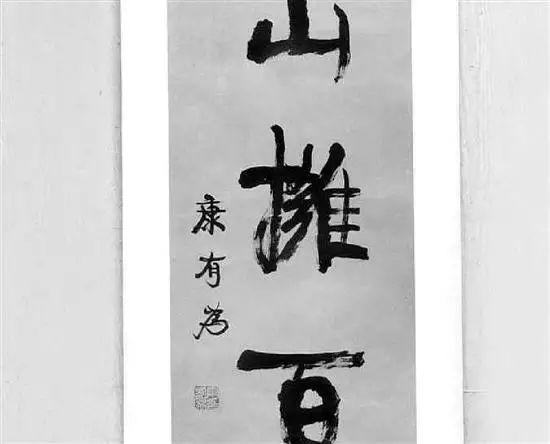 山擁百
康有為